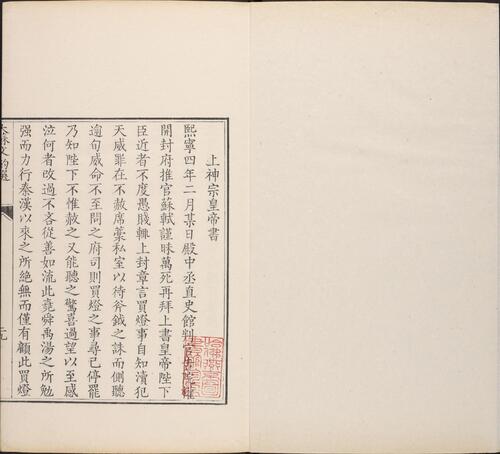 上神宗皇帝書
熙寧四年二月某日殿中丞直史館判官告院權
開封府推官蘇軾謹昧萬死再拜上書皇帝陛下
臣近者不度愚賤輒上封章言買燈事自知瀆犯
天威罪在不赦席藁私室以待斧鉞之誅而側聽
逾旬威命不至問之府司則買燈之事尋已停罷
乃知陛下不惟赦之又能聽之驚喜過望以至感
泣何者改過不吝從善如流此堯舜禹湯之所勉
强而力行秦漢以來之所絶無而僅有顧此買燈